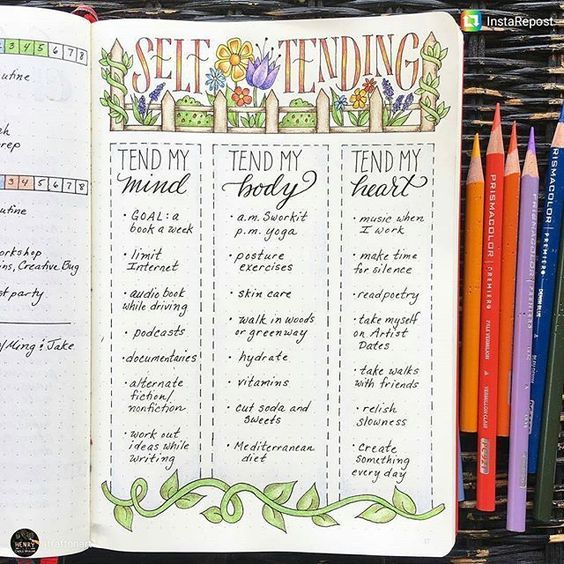 InstaRepost
3 4 5 6 7 8
utine
ch
rep
3 4 5 6 7 8
utine
rkshop
ns, Creative Bug
t party
/Ming & Jake
SELF TENDING
TEND MY
mind
• GOAL: a
book a week
• limit
Internet
• audio book
while driving
• podcasts
• documentaires
• alternate
fiction/
nonfiction
• work out
ideas while
writing
TEND MY
body
• a.m. Sworkit
p.m. yoga
• posture
exercises
• skin care
• walk in woods
or greenway
• hydrate
• vitamins
• cut soda and
sweets
• Mediterranean
diet
TEND MY
heart
• music when
I work
• make time
for silence
• read poetry
• take myself
on Artist
Dates
• take walks
with friends
• relish
slowness
• Create
something
every day
17
PRISMACOLOR PREMIER
PRISMACOLOR PREMIER
HENRY